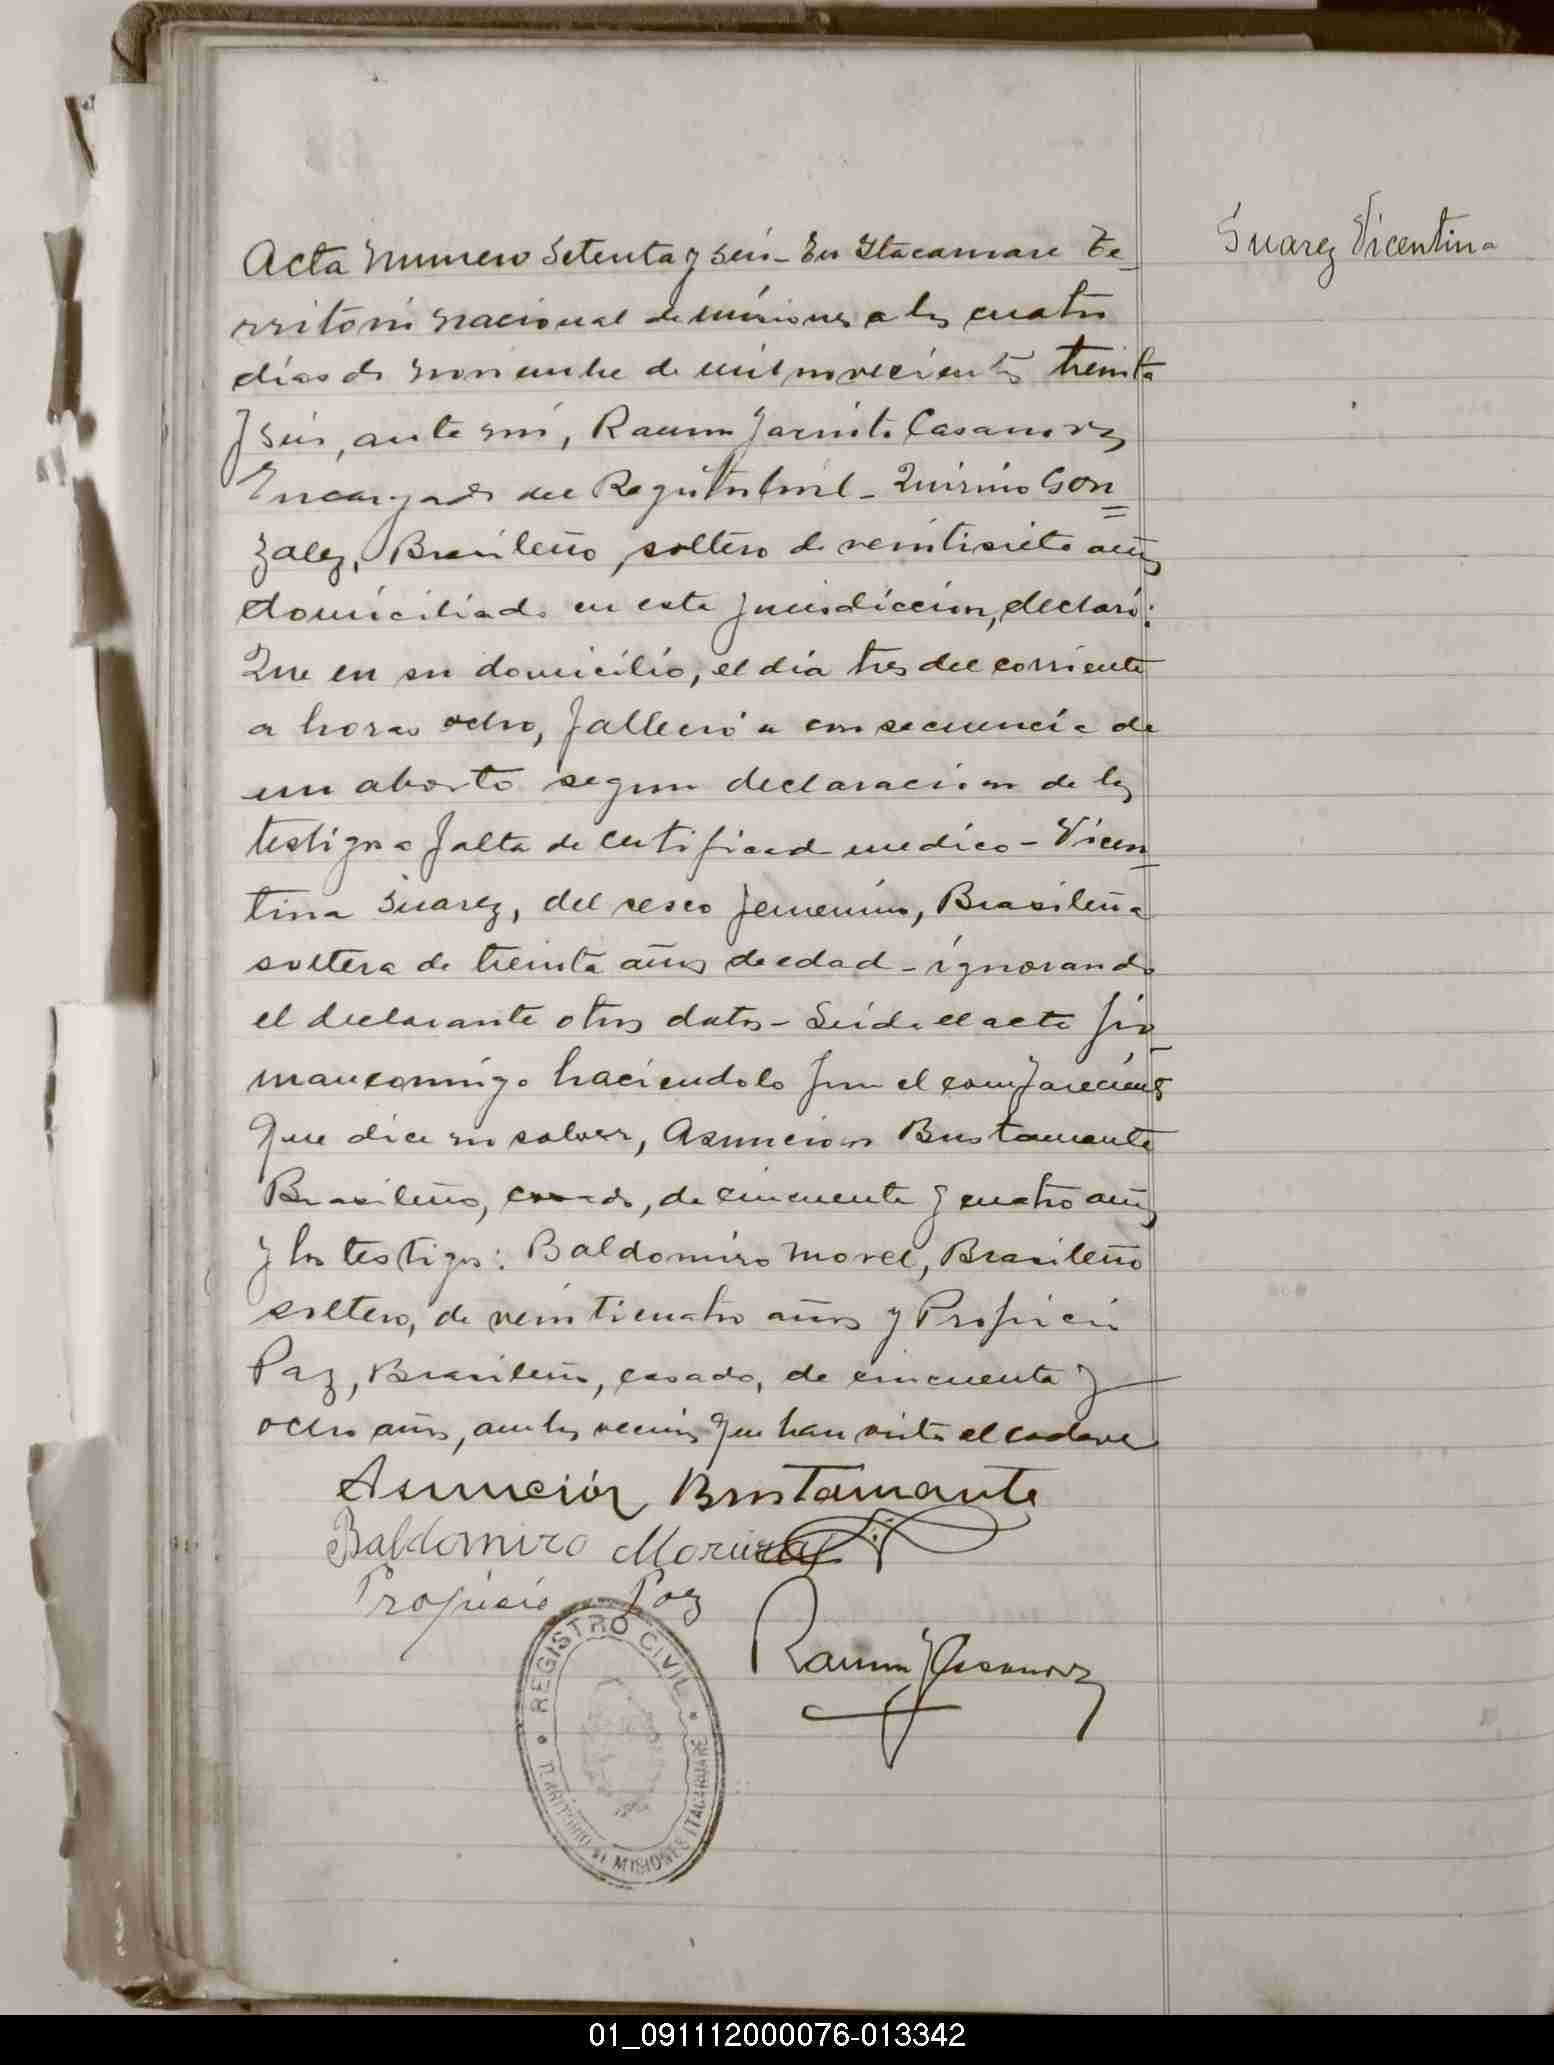 Suarez Vicentina
Acta Numero Setenta y seis - En Itacaruare Te-
rritorio nacional de Misiones a los cuatro
días de Noviembre de mil novecientos treinta
y seis, ante mí, Ramon Jacinto Casanova
Encargado del Registro Civil - Quirino Gon
zalez, Brasileño, soltero de veintisiete años
domiciliado en esta jurisdiccion, declaró:
Que en su domicilio, el día tres del corriente
a horas ocho, falleció a consecuencia de
un aborto segun declaracion de los
testigos a falta de certificado medico - Vicen-
tina Suarez, del sexo femenino, Brasileña
soltera de treinta años de edad - ignorando
el declarante otros datos - Leida el acta fir-
man conmigo haciendolo por el compareciente
que dice no saber, Asuncion Bustamante
Brasileño, casado, de cincuenta y cuatro años
y los testigos: Baldomiro Morel, Brasileño
soltero, de veinticuatro años y Propicio
Paz, Brasileño, casado, de cincuenta y
ocho años, ambos vecinos que han visto el cadaver
Asunción Bustamante
Baldomiro
Propicio Paz
Ramon J Casanova
REGISTRO CIVIL
TERRITORIO DE MISIONES ITACARUARE
01_091112000076-013342